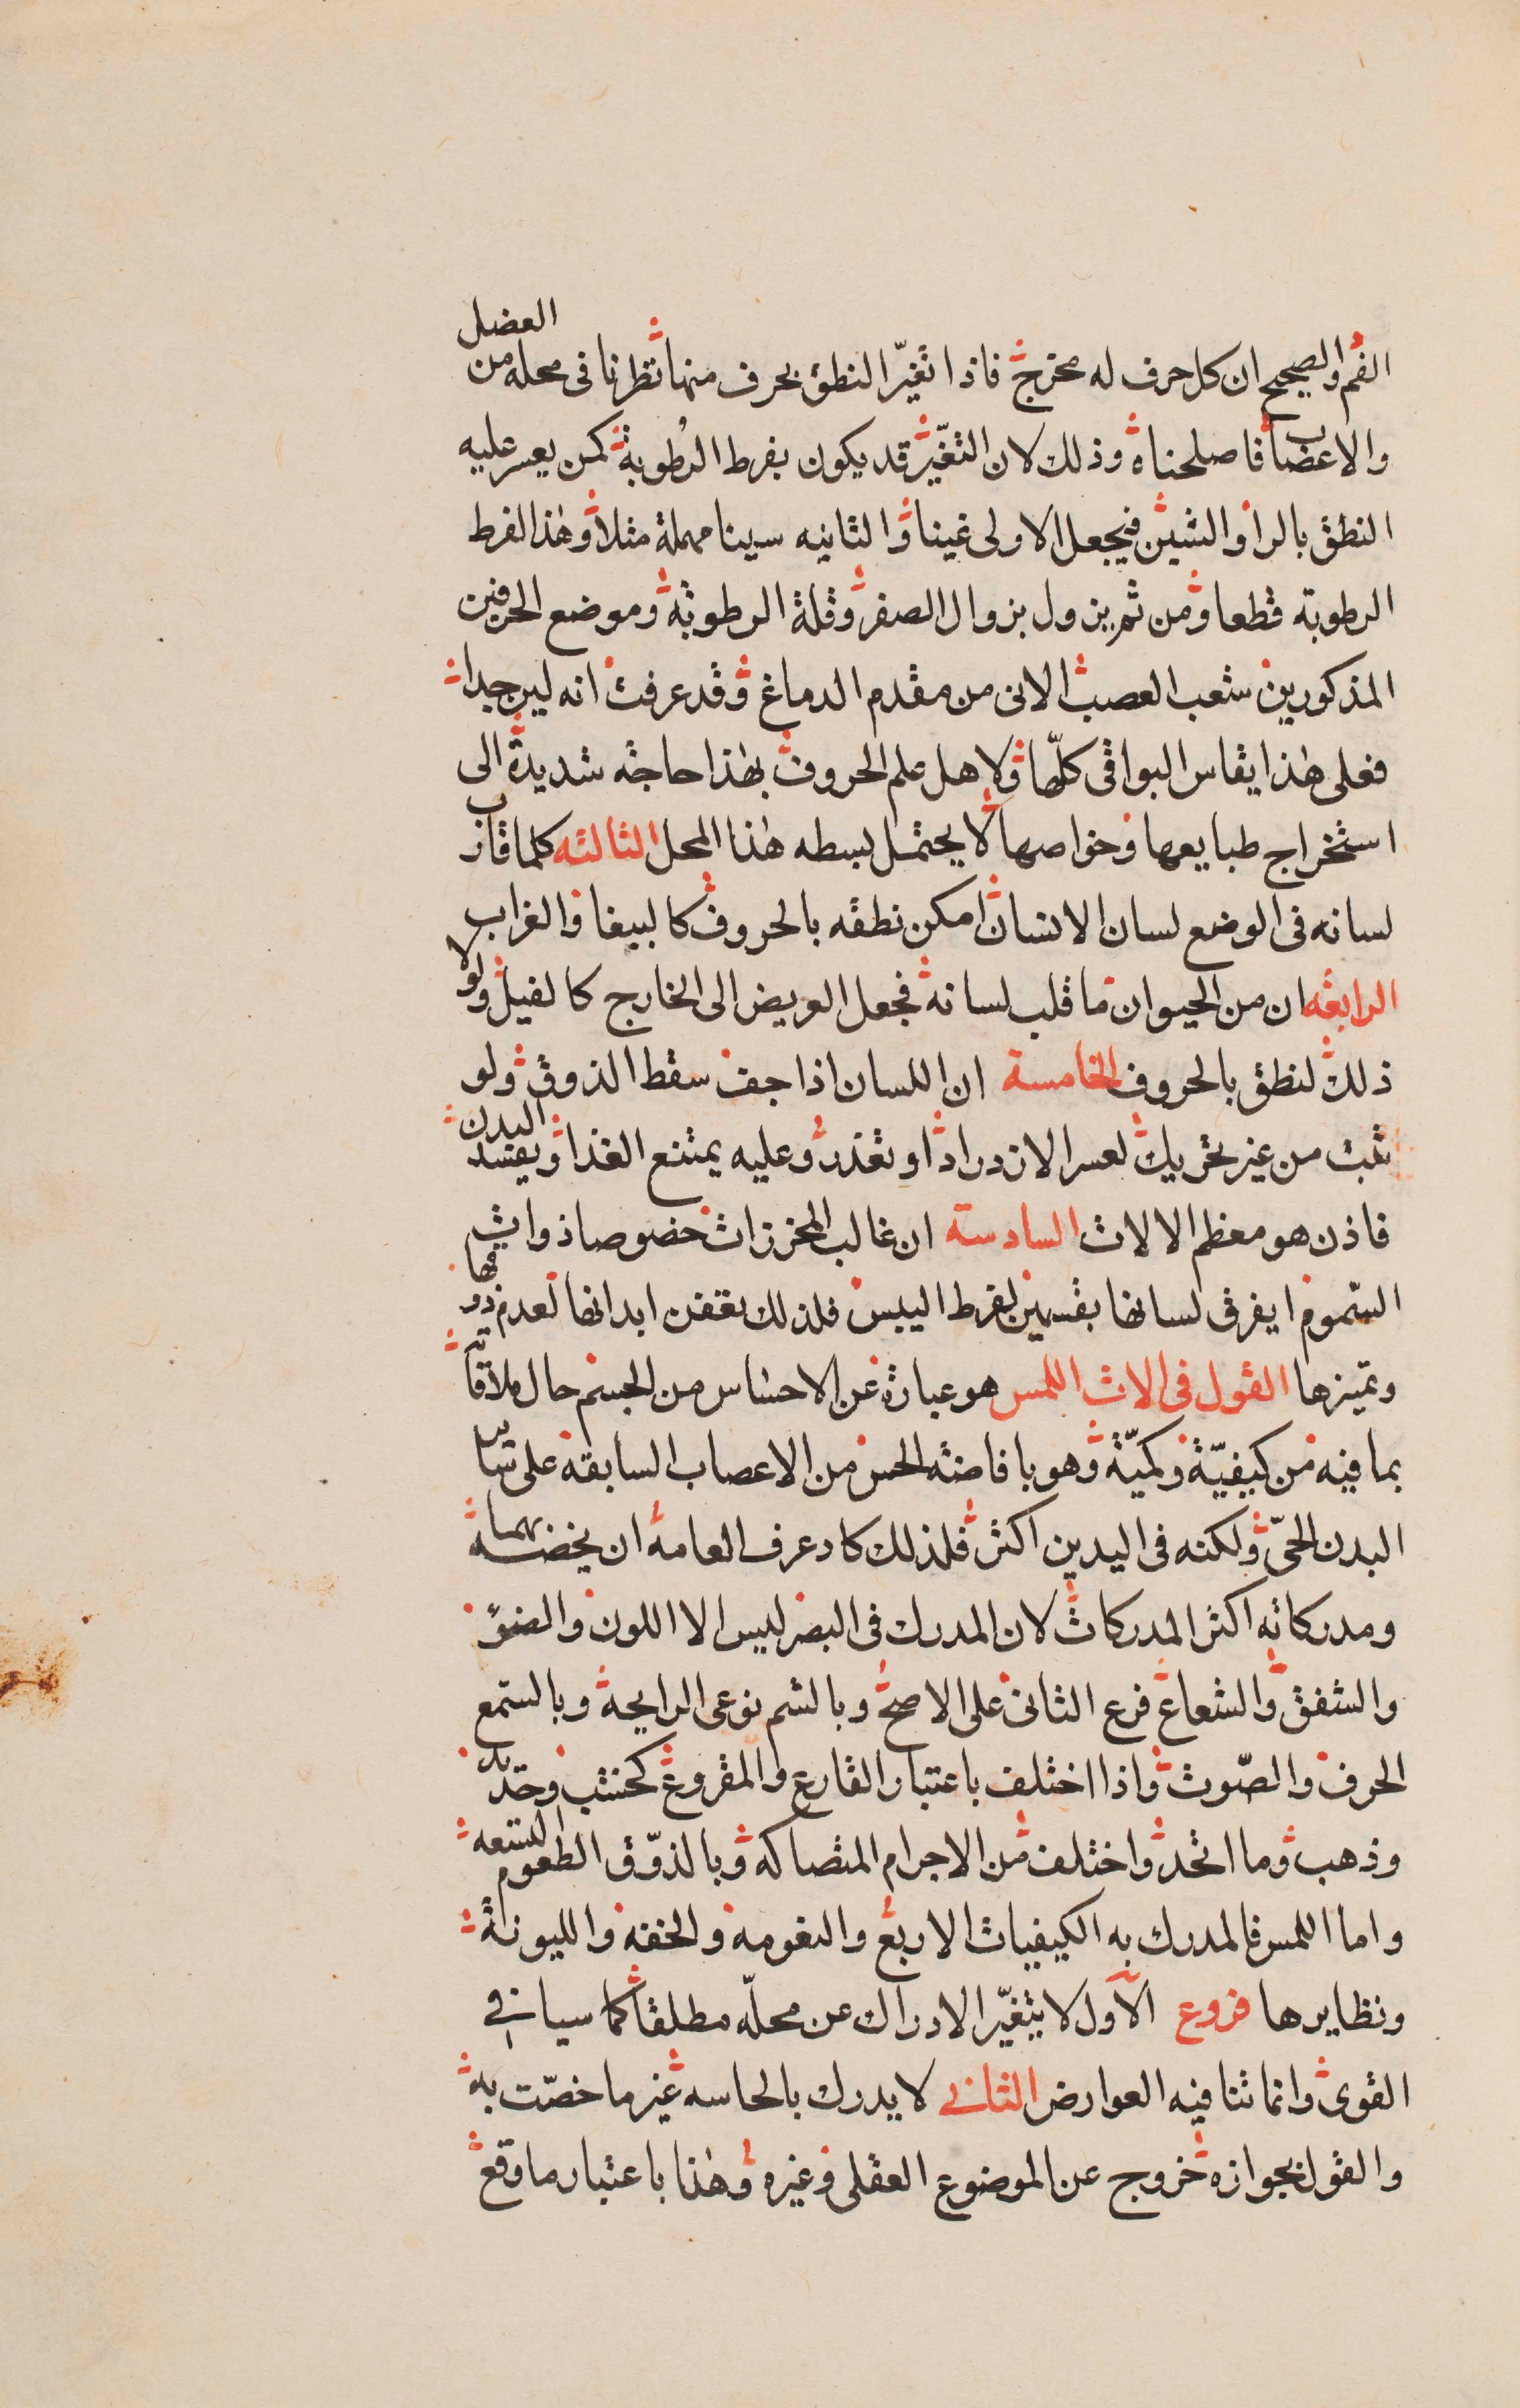 الفم والصحيح ان كل حرف له مخرج فاذا تغيّر النطق بحرف منها نظرنا فى محله من العضل
والاعصاب فاصلحناه وذلك لان التغيّر قد يكون بفرط الرطوبة كمن يعسر عليه
النطق بالرا والشين فيجعل الاولى غينا والثانيه سينا مهملة مثلا وهذا لفرط
الرطوبة قطعا ومن ثم يزول بزوال الصغر وقلة الرطوبة وموضع الحرفين
المذكورين شعب العصب الاتى من مقدم الدماغ وقد عرفت انه لين جدا
فعلى هذا يقاس البواقى كلّها ولاهل علم الحروف بهذا حاجة شديدة الى
استخراج طبايعها وخواصها لا يحتمل بسطه هذا المحل الثالثه كلما قارب
لسانه فى الوضع لسان الانسان امكن نطقه بالحروف كالببغا والغراب
الرابعه ان من الحيوان ما قلب لسانه فجعل العريض الى الخارج كالفيل ولولا
ذلك لنطق بالحروف الخامسة ان اللسان اذا جف سقط الذوق ولو
ثبت من غير تحريك لعسر الازدراد او تعذر وعليه يمتنع الغذا ويفسد البدن
فاذن هو معظم الالات السادسة ان غالب المخرزات خصوصا ذوات
السّموم ايفرق لسانها بقسمين لفرط اليبس فلذلك تعفن ابدانها لعدم ذوقها
وتميزها القول فى الات اللمس هو عبارة عن الاحساس من الجسم حال ملاقاته
بما فيه من كيفيّة وكميّة وهو بافاضة الحس من الاعصاب السابقة على سائر
البدن الحىّ ولكنه فى اليدين اكثر فلذلك كاد عرف العامه ان يخصه بهما
ومدركاته اكثر المدركات لان المدرك فى البصر ليس الا اللون والضوء
والشفق والشعاع فرع الثانى على الاصح وبالشم نوعى الرايحة وبالسمع
الحرف والصّوت واذا اختلف باعتبار القارع والمقروع كخشب وحديد
وذهب وما اتحد واختلف من الاجرام المتصاكه وبالذوّق الطعوم التسعه
واما اللمس فالمدرك به الكيفيات الاربع والنعومه والخفه والليونة
ونظايرها فروع الاول لا يتغيّر الادراك عن محلّه مطلقا كما سياتى فى
القوى وانما تنافيه العوارض الثانى لا يدرك بالحاسه غير ما خصّت به
والقول بجوازه خروج عن الموضوع العقلى وغيره وهذا باعتبار ما وقع